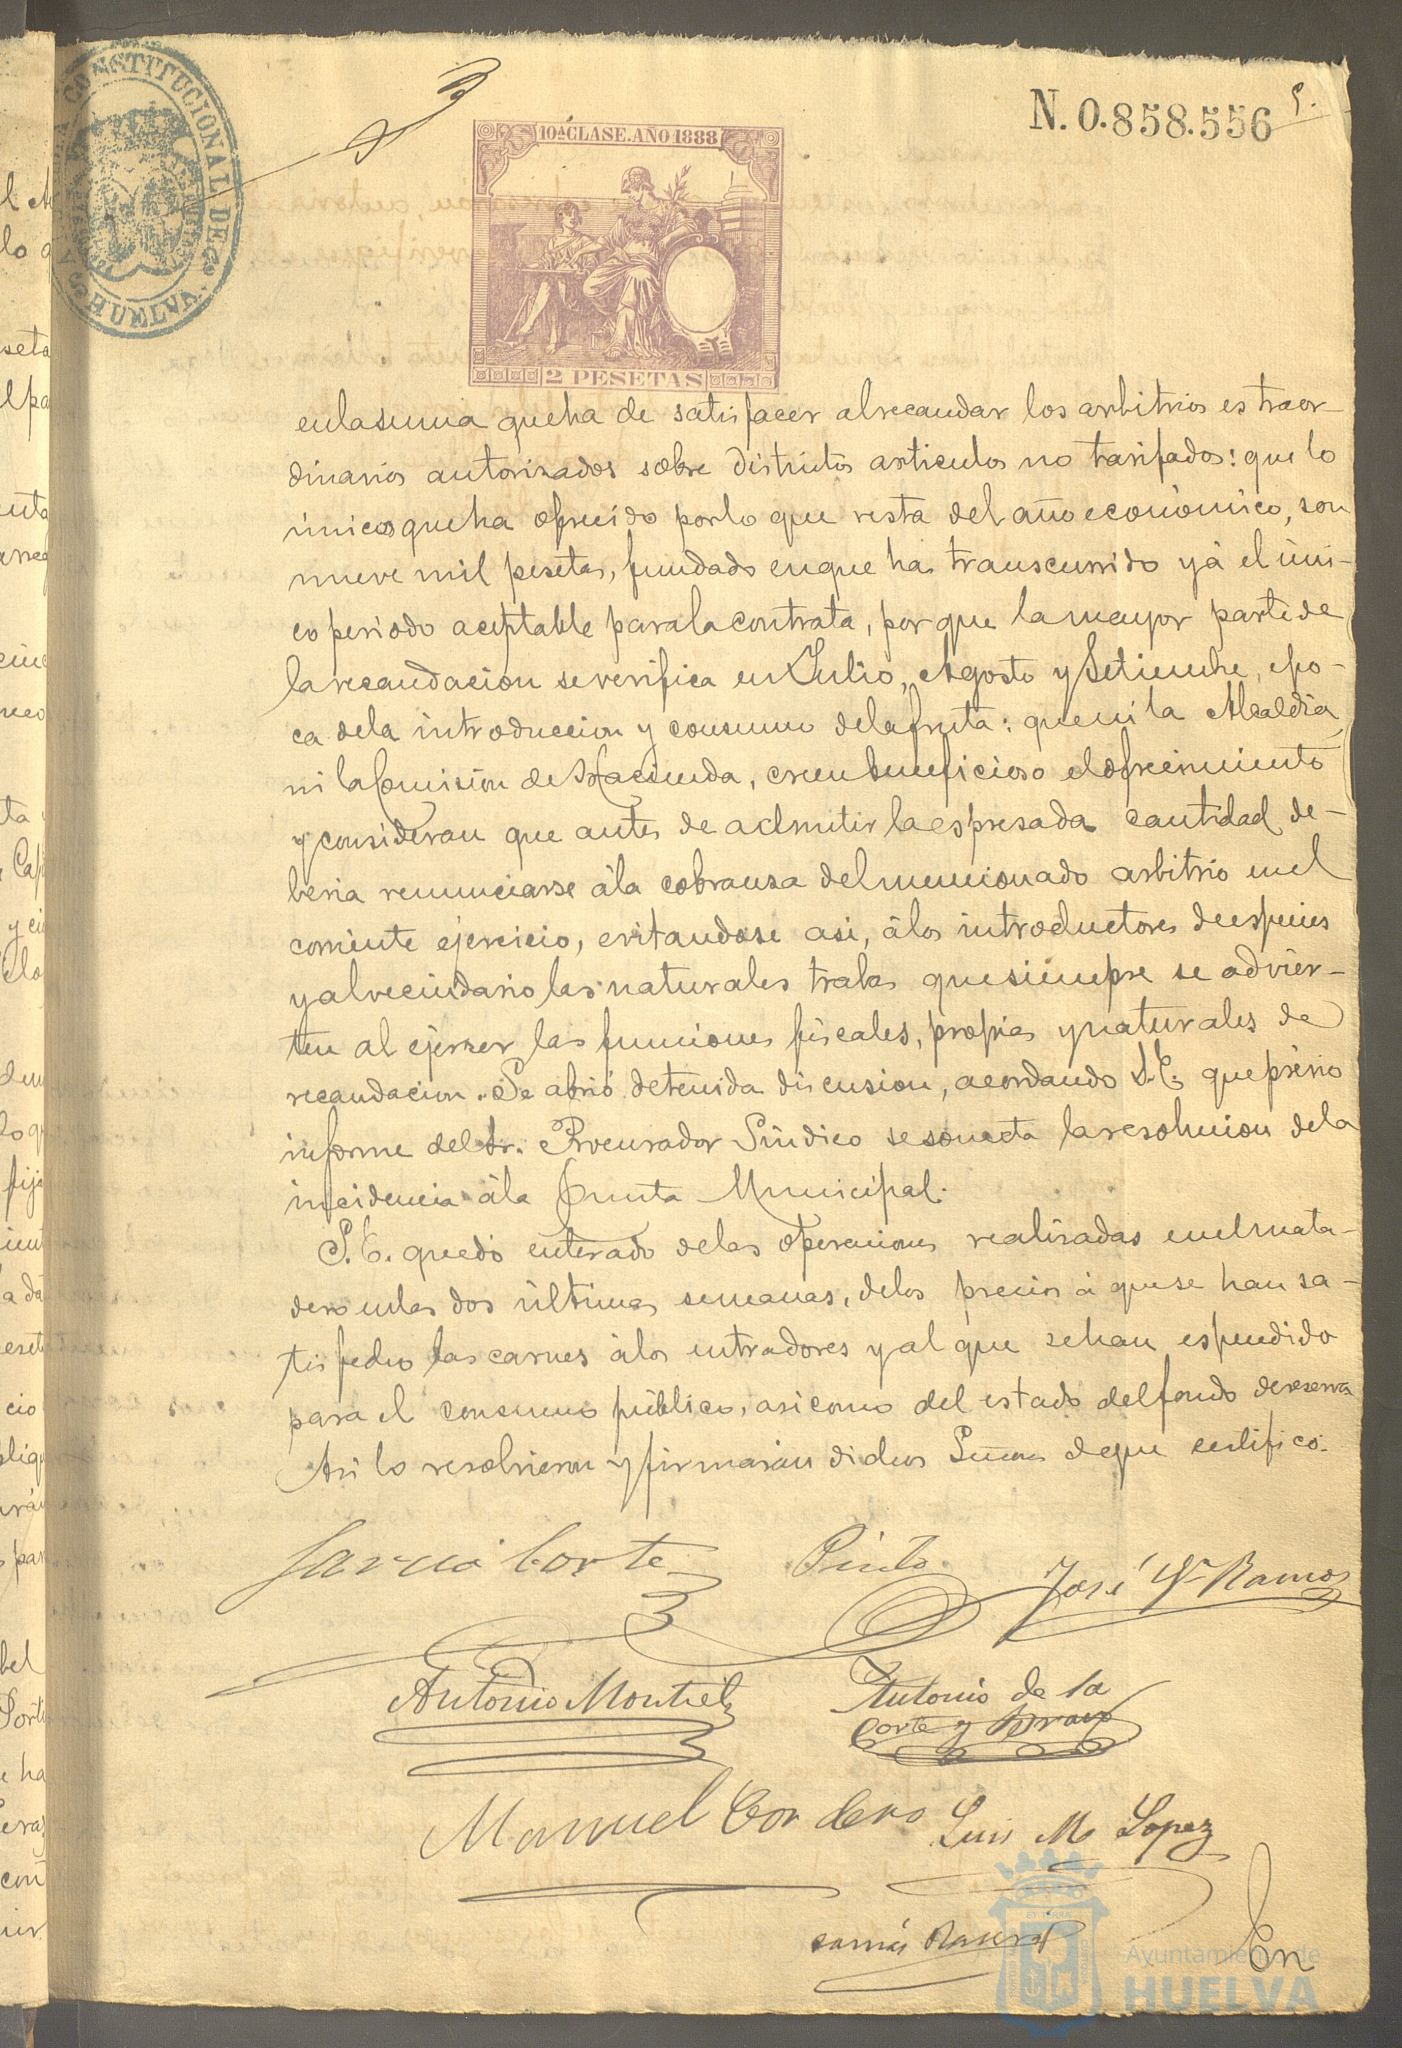 ALCALDIA CONSTITUCIONAL DE HUELVA
N. 0.858.556
10ª CLASE. AÑO 1888
2 PESETAS
en la suma que ha de satisfacer al recaudar los arbitrios estraor-
dinarios autorizados sobre distintos articulos no tarifados: que lo
único que ha ofrecido por lo que resta del año económico, son
nueve mil pesetas, fundado en que ha transcurrido yá el úni-
co periodo aceptable para la contrata, por que la mayor parte de
la recaudacion se verifica en Julio, Agosto y Setiembre, epo-
ca de la introduccion y consumo de la fruta: que ni la Alcaldia
ni la Comisión de Hacienda, creen beneficioso el ofrecimiento
y consideran que antes de admitir la espresada cantidad de-
beria renunciarse á la cobransa del mencionado arbitrio en el
corriente ejercicio, evitandose asi, á los introductores de especies
y al vecindario las naturales trabas que siempre se advier-
ten al ejercer las funciones fiscales, propias y naturales de
recaudacion. Se abrió detenida discusion, acordando S.E. que prévio
informe del Sr. Procurador Síndico se someta la resolucion de la
incidencia á la Junta Municipal.
S. E. quedó enterado de las operaciones realizadas en el mata-
dero en las dos últimas semanas, de los precios á que se han sa-
tisfecho las carnes á los entradores y al que se han espendido
para el consumo público, asi como del estado del fondo de reserva
Asi lo resolvieron y firmarán dichos Señores de que certifico.
Garcia Corte
Pinto
José Gª Ramos
Antonio Montiel
Antonio de la
Corte y Bravo
Manuel Cordero
Luis M López
En
Ayuntamiento de
HUELVA